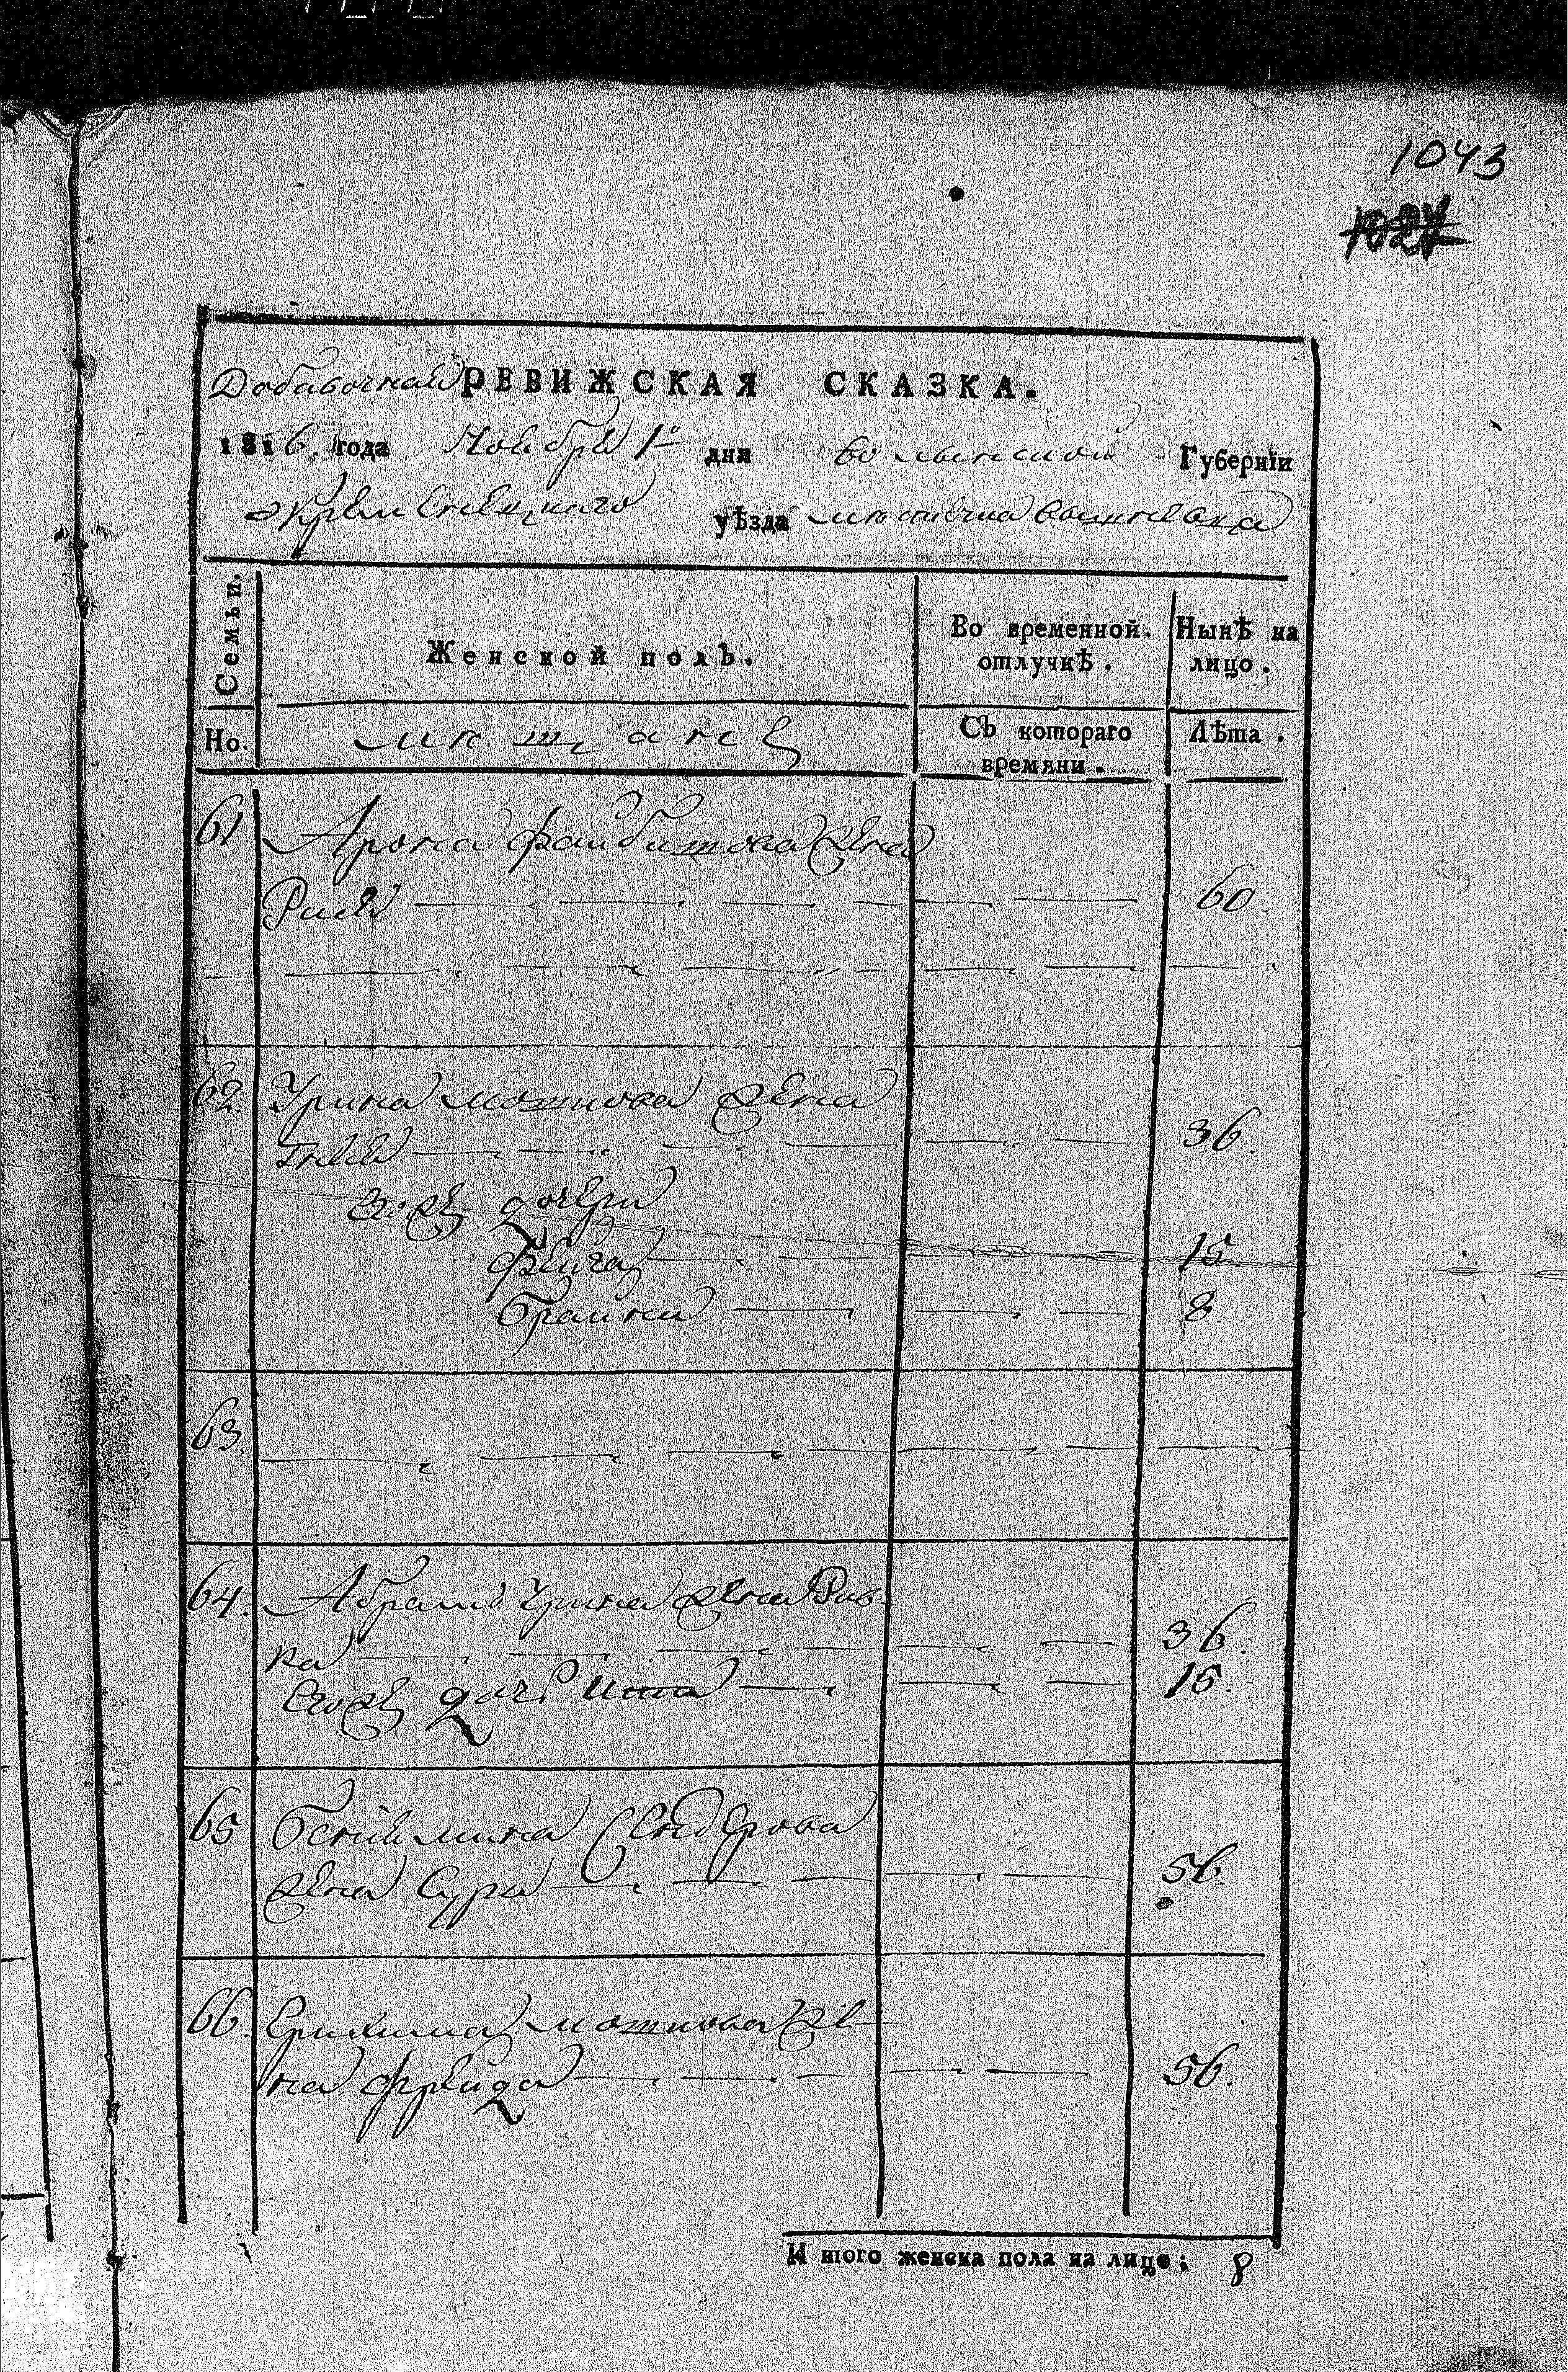 1043
1027
Добавочная РЕВИЖСКАЯ СКАЗКА.
1816 года Ноября 1го дня Волынской Губернїи
Кременецкаго уѣзда местечка
Семьи. Женской полъ. Во временной отлучкѣ. Нынѣ на лицо.
Но. мещане Съ котораго времяни. Лѣта.
61 Арона Файбишова жена
Рися 60
62. Урина мошкова жена
36.
Егоже дочери
Фейга 15
Брайна 8
63.
64. Абрама Урина жена Рив-
ка 36.
Егоже дочь 15.
65 Бениямина Сендерова
жена Сура 56.
66. мошкова же-
на Фрейда 56.
И того женска пола на лице: 8